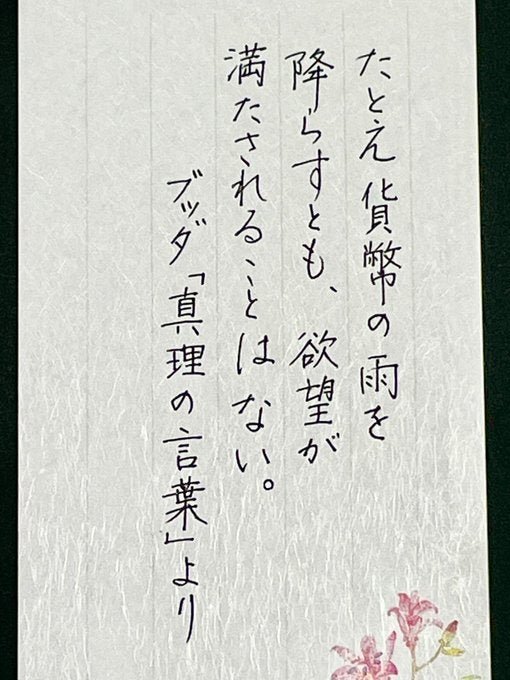 たとえ貨幣の雨を
降らすとも、欲望が
満たされることはない。
ブッダ「真理の言葉」より